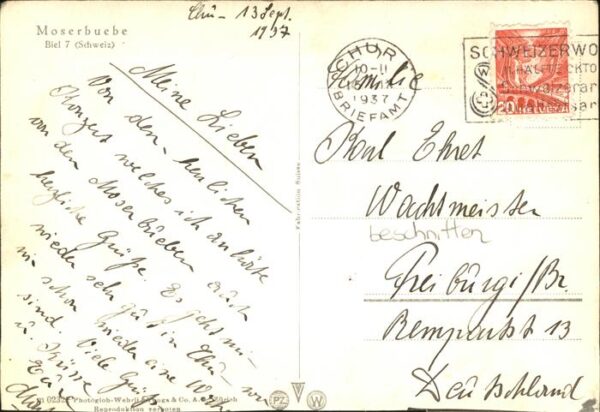 Moserbuebe
Biel 7 (Schweiz)
Chur - 13 Sept.
1937
Meine Lieben
Von dem herrlichen
Konzert welches ich anhörte
von den Moserbueben euch
herzliche Grüße. Es geht mir
wieder sehr gut in Chur - wo
wir schon wieder eine
sind. Viele Grüße
u. Küsse
Eure
CHUR
10-11
1937
BRIEFAMT
SCHWEIZERWO
20
HELVETIA
Familie
Karl Ehret
Wachtmeister
beschnitten
Freiburg i/Br.
13
Deutschland
Fabrication Suisse
Photoglob-Wehrli & Co. A.G. Zürich
Reproduktion verboten
PZ W